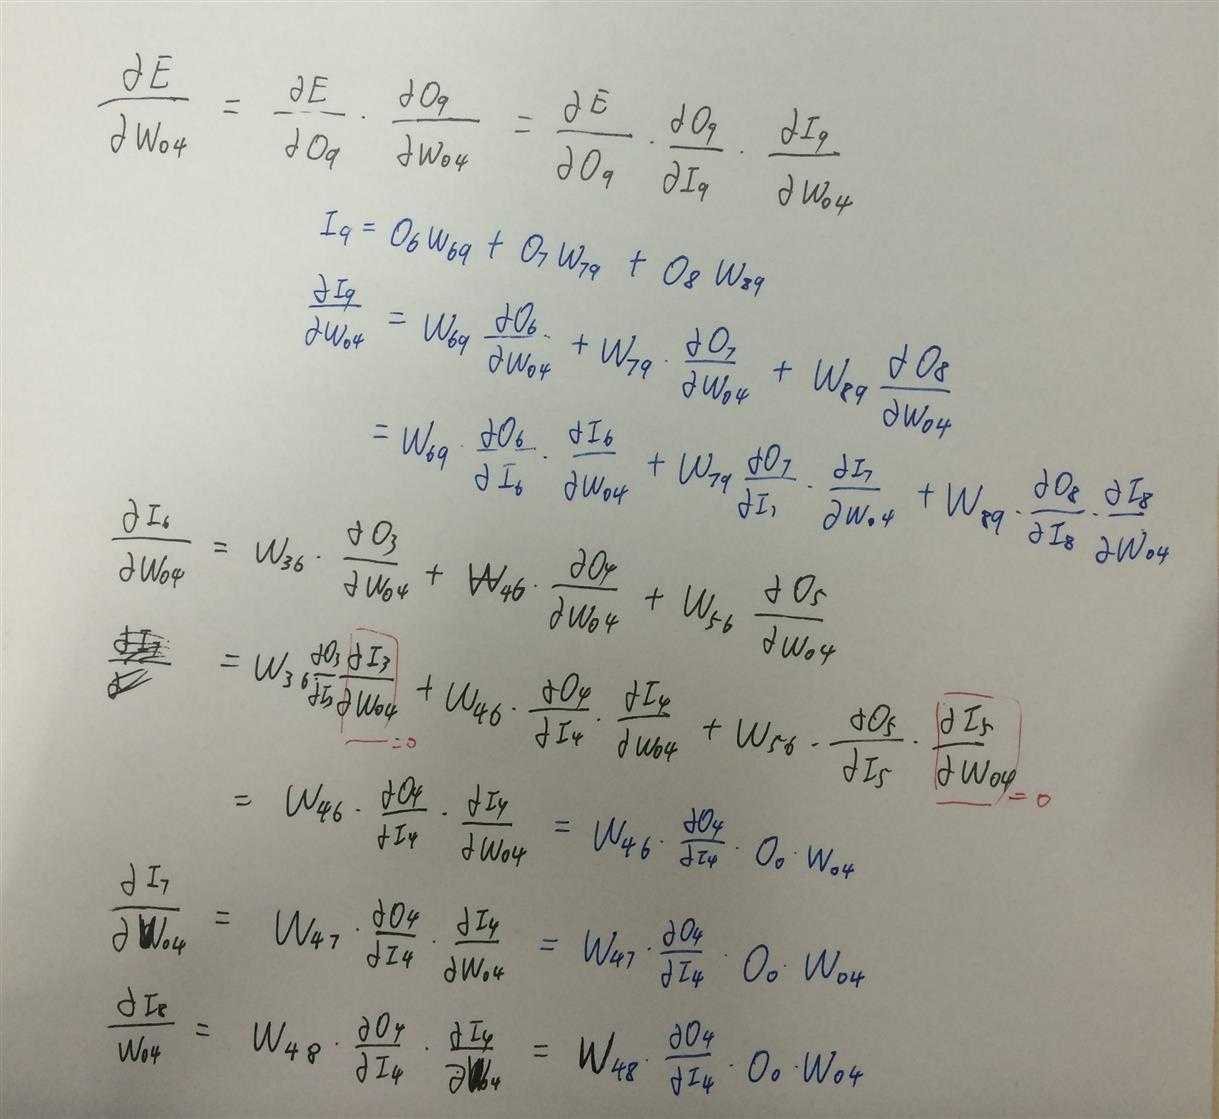 ∂E/∂W₀₄ = ∂E/∂O₉ · ∂O₉/∂W₀₄ = ∂E/∂O₉ · ∂O₉/∂I₉ · ∂I₉/∂W₀₄
I₉ = O₆W₆₉ + O₇W₇₉ + O₈W₈₉
∂I₉/∂W₀₄ = W₆₉ ∂O₆/∂W₀₄ + W₇₉ · ∂O₇/∂W₀₄ + W₈₉ ∂O₈/∂W₀₄
= W₆₉ · ∂O₆/∂I₆ · ∂I₆/∂W₀₄ + W₇₉ ∂O₇/∂I₇ · ∂I₇/∂W₀₄ + W₈₉ · ∂O₈/∂I₈ · ∂I₈/∂W₀₄
∂I₆/∂W₀₄ = W₃₆ · ∂O₃/∂W₀₄ + W₄₆ · ∂O₄/∂W₀₄ + W₅₆ ∂O₅/∂W₀₄
= W₃₆ ∂O₃/∂I₃ ∂I₃/∂W₀₄ + W₄₆ · ∂O₄/∂I₄ · ∂I₄/∂W₀₄ + W₅₆ · ∂O₅/∂I₅ · ∂I₅/∂W₀₄
=0 =0
= W₄₆ · ∂O₄/∂I₄ · ∂I₄/∂W₀₄ = W₄₆ · ∂O₄/∂I₄ · O₀ · W₀₄
∂I₇/∂W₀₄ = W₄₇ · ∂O₄/∂I₄ · ∂I₄/∂W₀₄ = W₄₇ · ∂O₄/∂I₄ · O₀ · W₀₄
∂I₈/W₀₄ = W₄₈ · ∂O₄/∂I₄ · ∂I₄/∂W₀₄ = W₄₈ · ∂O₄/∂I₄ · O₀ · W₀₄